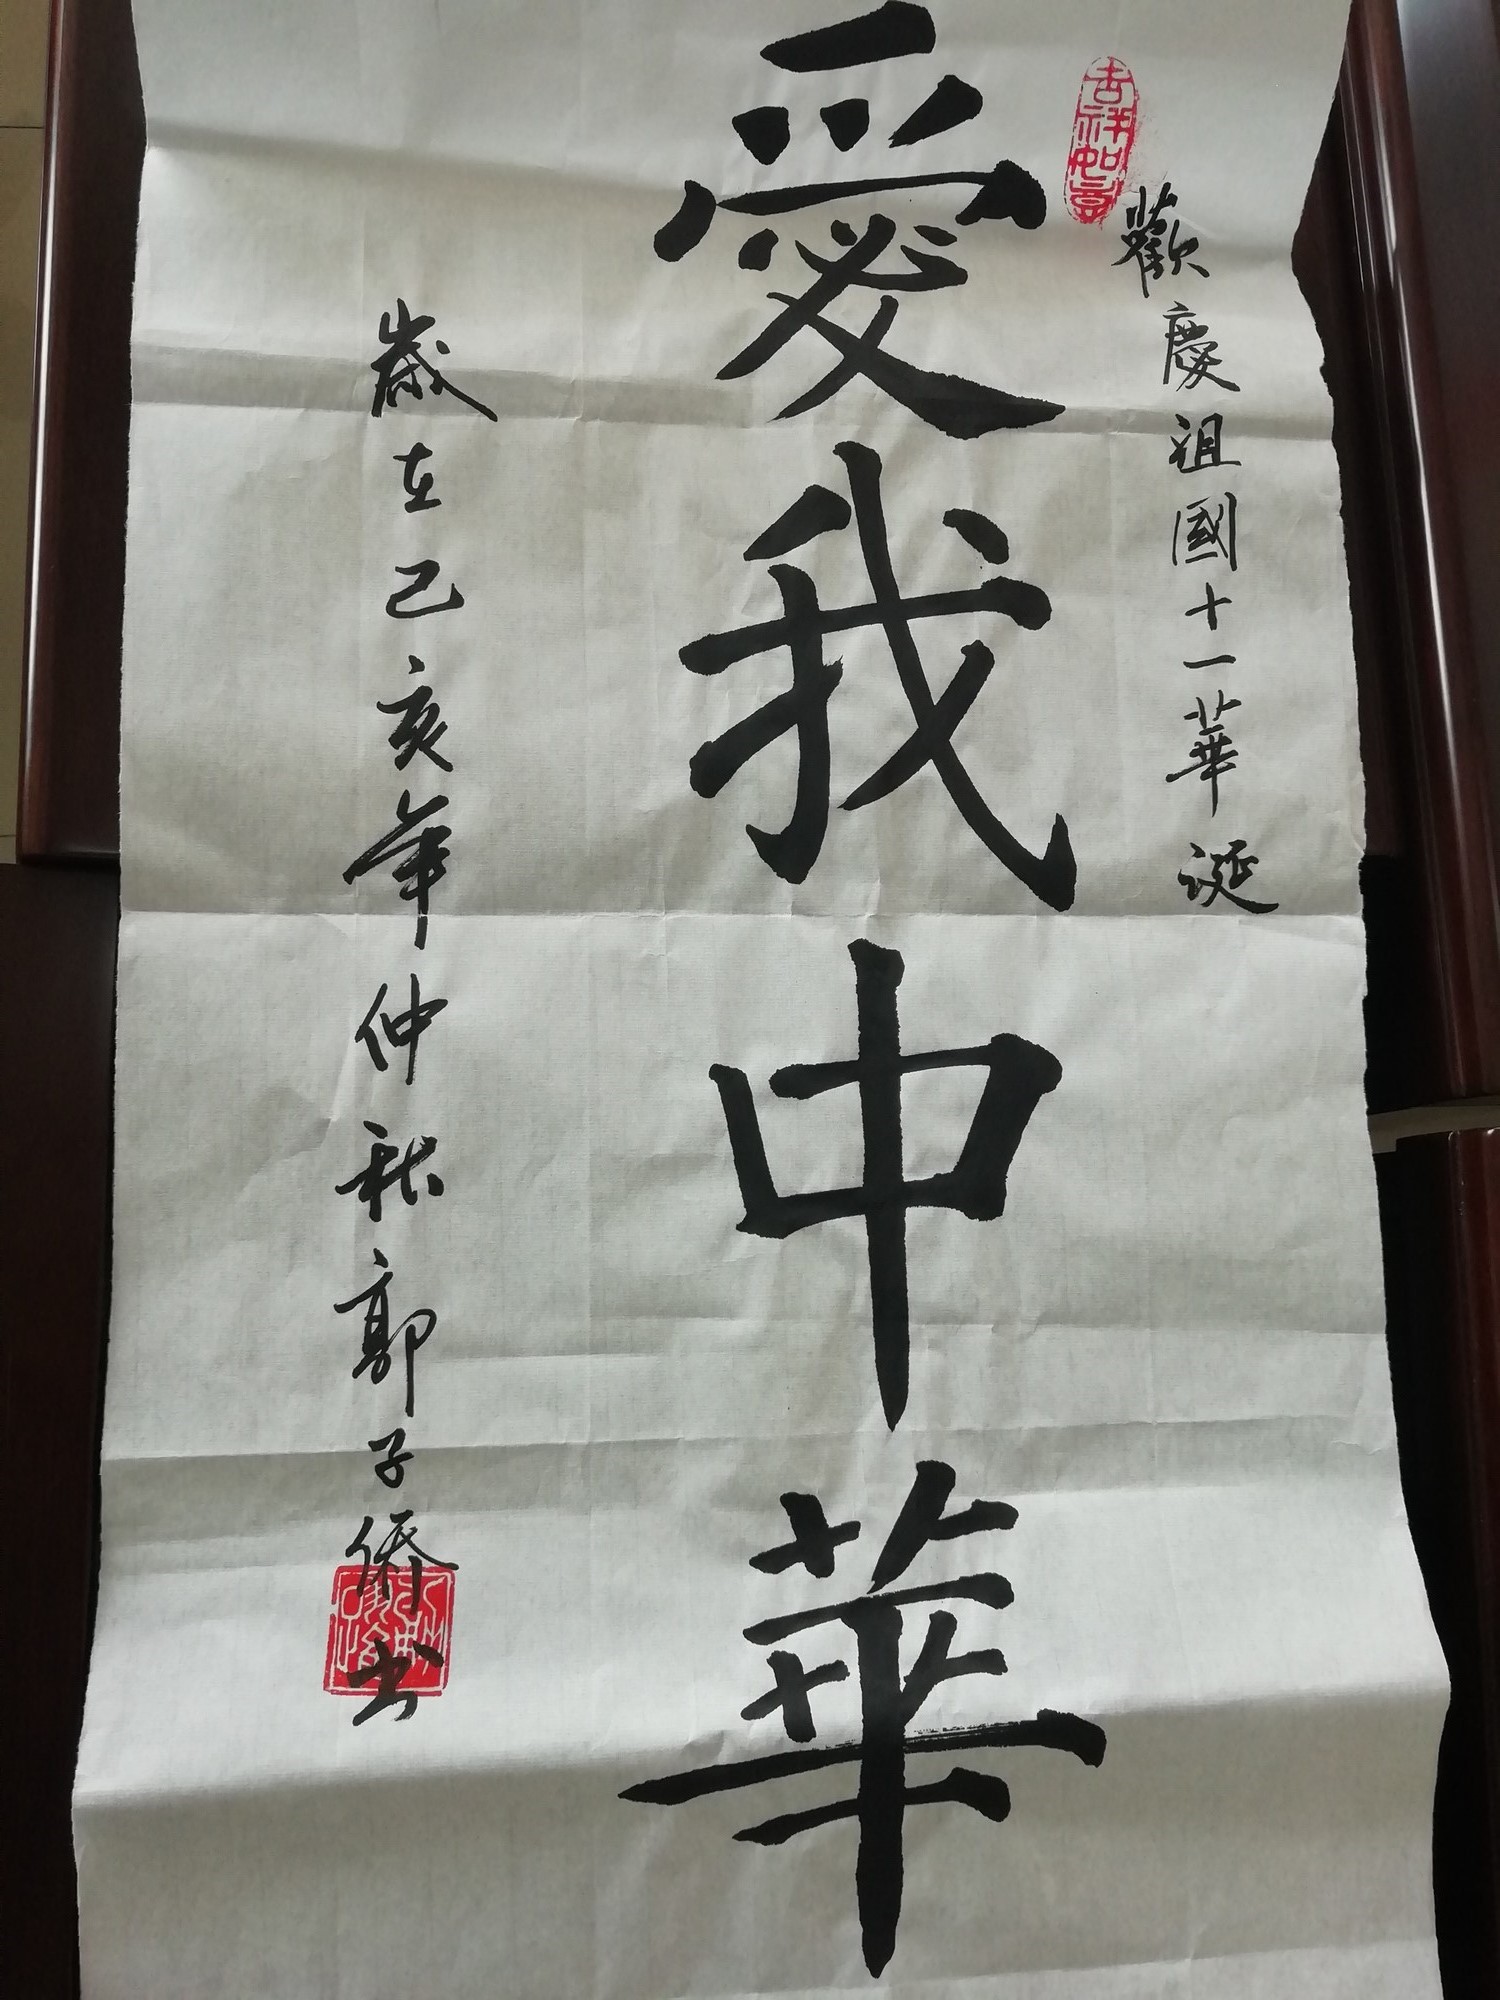 吉祥如意
歡慶祖國十一華誕
愛我中華
歲在己亥年仲秋郭子僑書